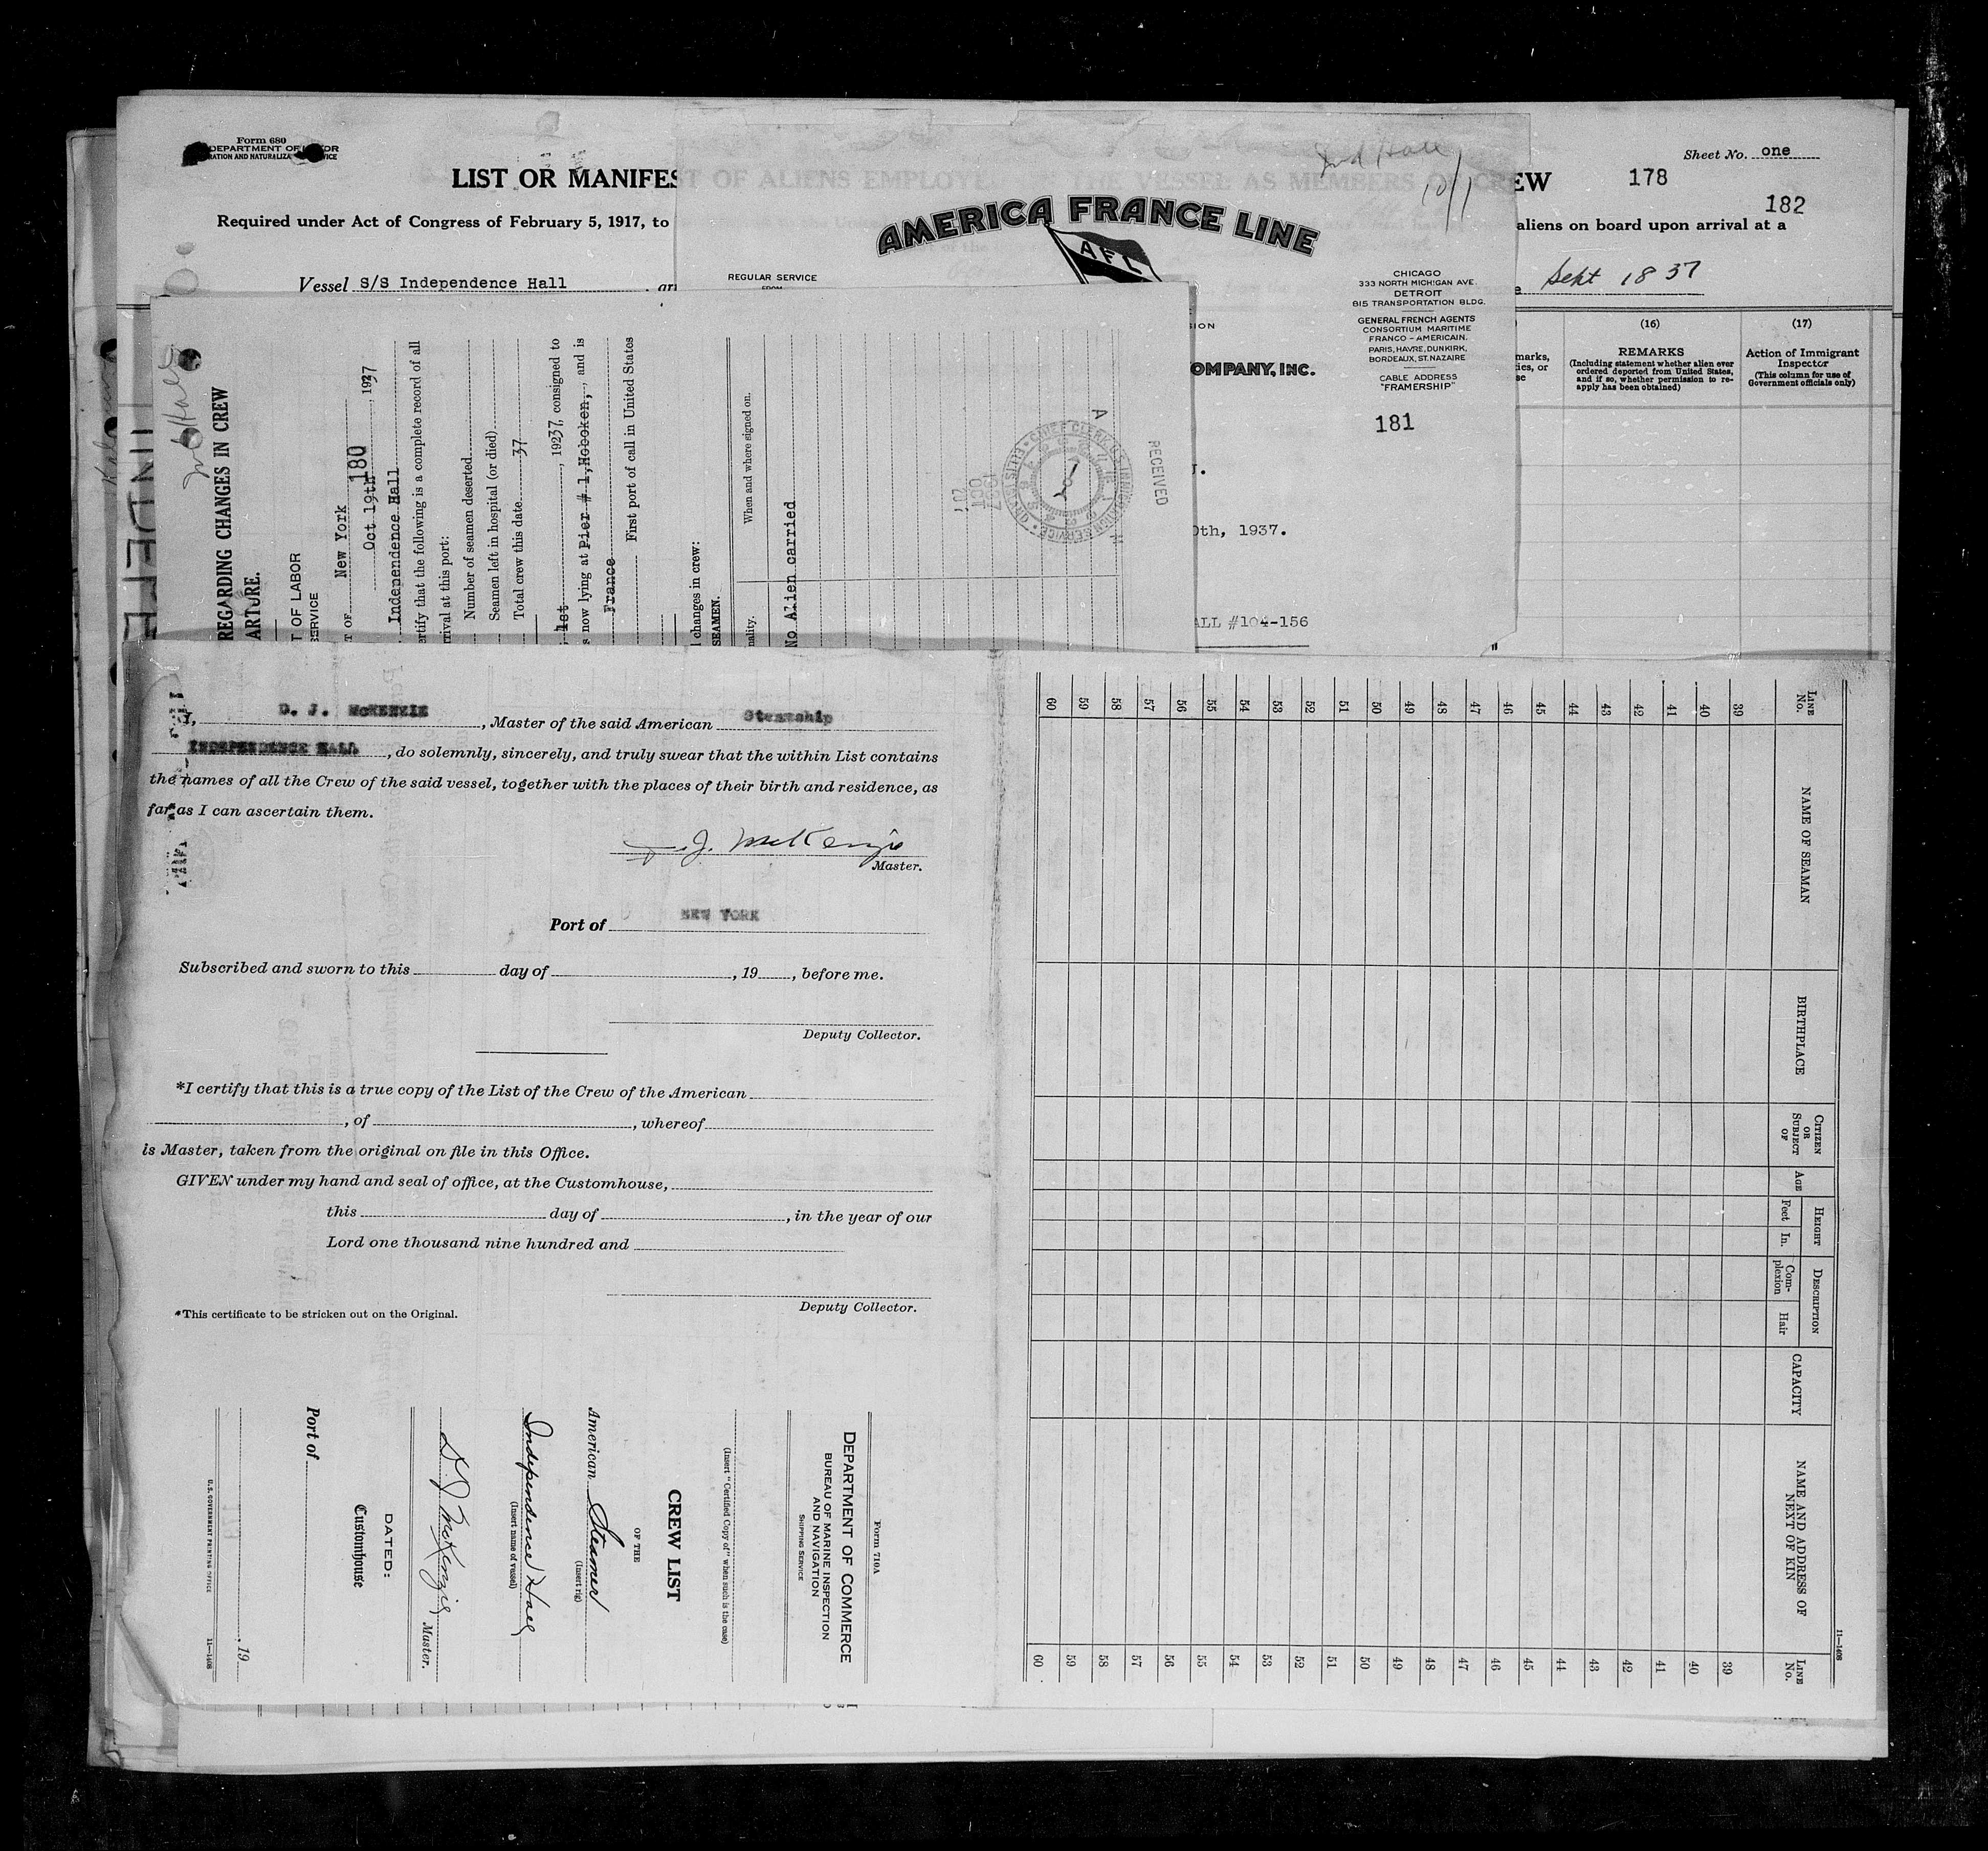 Form 680
DEPARTMENT OF
LIST OR MANIFES
ST OF ALIENS EMPLOYE THE VESSEL AS MEMBERS OF CRE
EW
178
Sheet No. one
182
Required under Act of Congress of February 5, 1917, to
aliens on board upon arrival at a
Vessel S/S Independence Hall
Sept 18 37
(16)
REMARKS
(Including statement whether alien ever
ordered deported from United States,
and if so, whether permission to re-
apply has been obtained)
(17)
Action of Immigrant
Inspector
(This column for use of
Government officials only)
AMERICA FRANCE LINE
AFL
REGULAR SERVICE
FROM
CHICAGO
333 NORTH MICHIGAN AVE.
DETROIT
815 TRANSPORTATION BLDG.
GENERAL FRENCH AGENTS
CONSORTIUM MARITIME
FRANCO - AMERICAIN.
PARIS, HAVRE, DUNKIRK,
BORDEAUX, ST. NAZAIRE
CABLE ADDRESS
"FRAMERSHIP"
OMPANY, INC.
181
0th, 1937.
ALL #104-156
REGARDING CHANGES IN CREW
ARTURE.
T OF LABOR
SERVICE
T OF New York
180
Oct 19th, 1937
Independence Hall
ertify that the following is a complete record of all
rrival at this port:
Number of seamen deserted
Seamen left in hospital (or died)
Total crew this date 37
1st, 1937, consigned to
s now lying at Pier # 1, Hoboken, and is
France First port of call in United States
l changes in crew:
SEAMEN.
nality.
When and where signed on.
No Alien carried
RECEIVED
I, D. J. McKENZIE, Master of the said American Steamship
INDEPENDENCE HALL, do solemnly, sincerely, and truly swear that the within List contains
the names of all the Crew of the said vessel, together with the places of their birth and residence, as
far as I can ascertain them.
D. J. McKenzie
Master.
Port of NEW YORK
Subscribed and sworn to this day of , 19 , before me.
Deputy Collector.
*I certify that this is a true copy of the List of the Crew of the American
, of , whereof
is Master, taken from the original on file in this Office.
GIVEN under my hand and seal of office, at the Customhouse,
this day of , in the year of our
Lord one thousand nine hundred and
Deputy Collector.
*This certificate to be stricken out on the Original.
Form 710A
DEPARTMENT OF COMMERCE
BUREAU OF MARINE INSPECTION
AND NAVIGATION
SHIPPING SERVICE
(Insert "Certified Copy of" when such is the case)
CREW LIST
OF THE
American Steamer
(Insert rig)
Independence Hall
(Insert name of vessel)
D. J. McKenzie Master.
DATED:
Customhouse
Port of
, 19
U.S. GOVERNMENT PRINTING OFFICE 11—1408
11—1408
LINE No.
NAME OF SEAMAN
BIRTHPLACE
CITIZEN OR SUBJECT OF
AGE
HEIGHT
Feet In.
DESCRIPTION
Complexion Hair
CAPACITY
NAME AND ADDRESS OF NEXT OF KIN
LINE No.
39 39
40 40
41 41
42 42
43 43
44 44
45 45
46 46
47 47
48 48
49 49
50 50
51 51
52 52
53 53
54 54
55 55
56 56
57 57
58 58
59 59
60 60